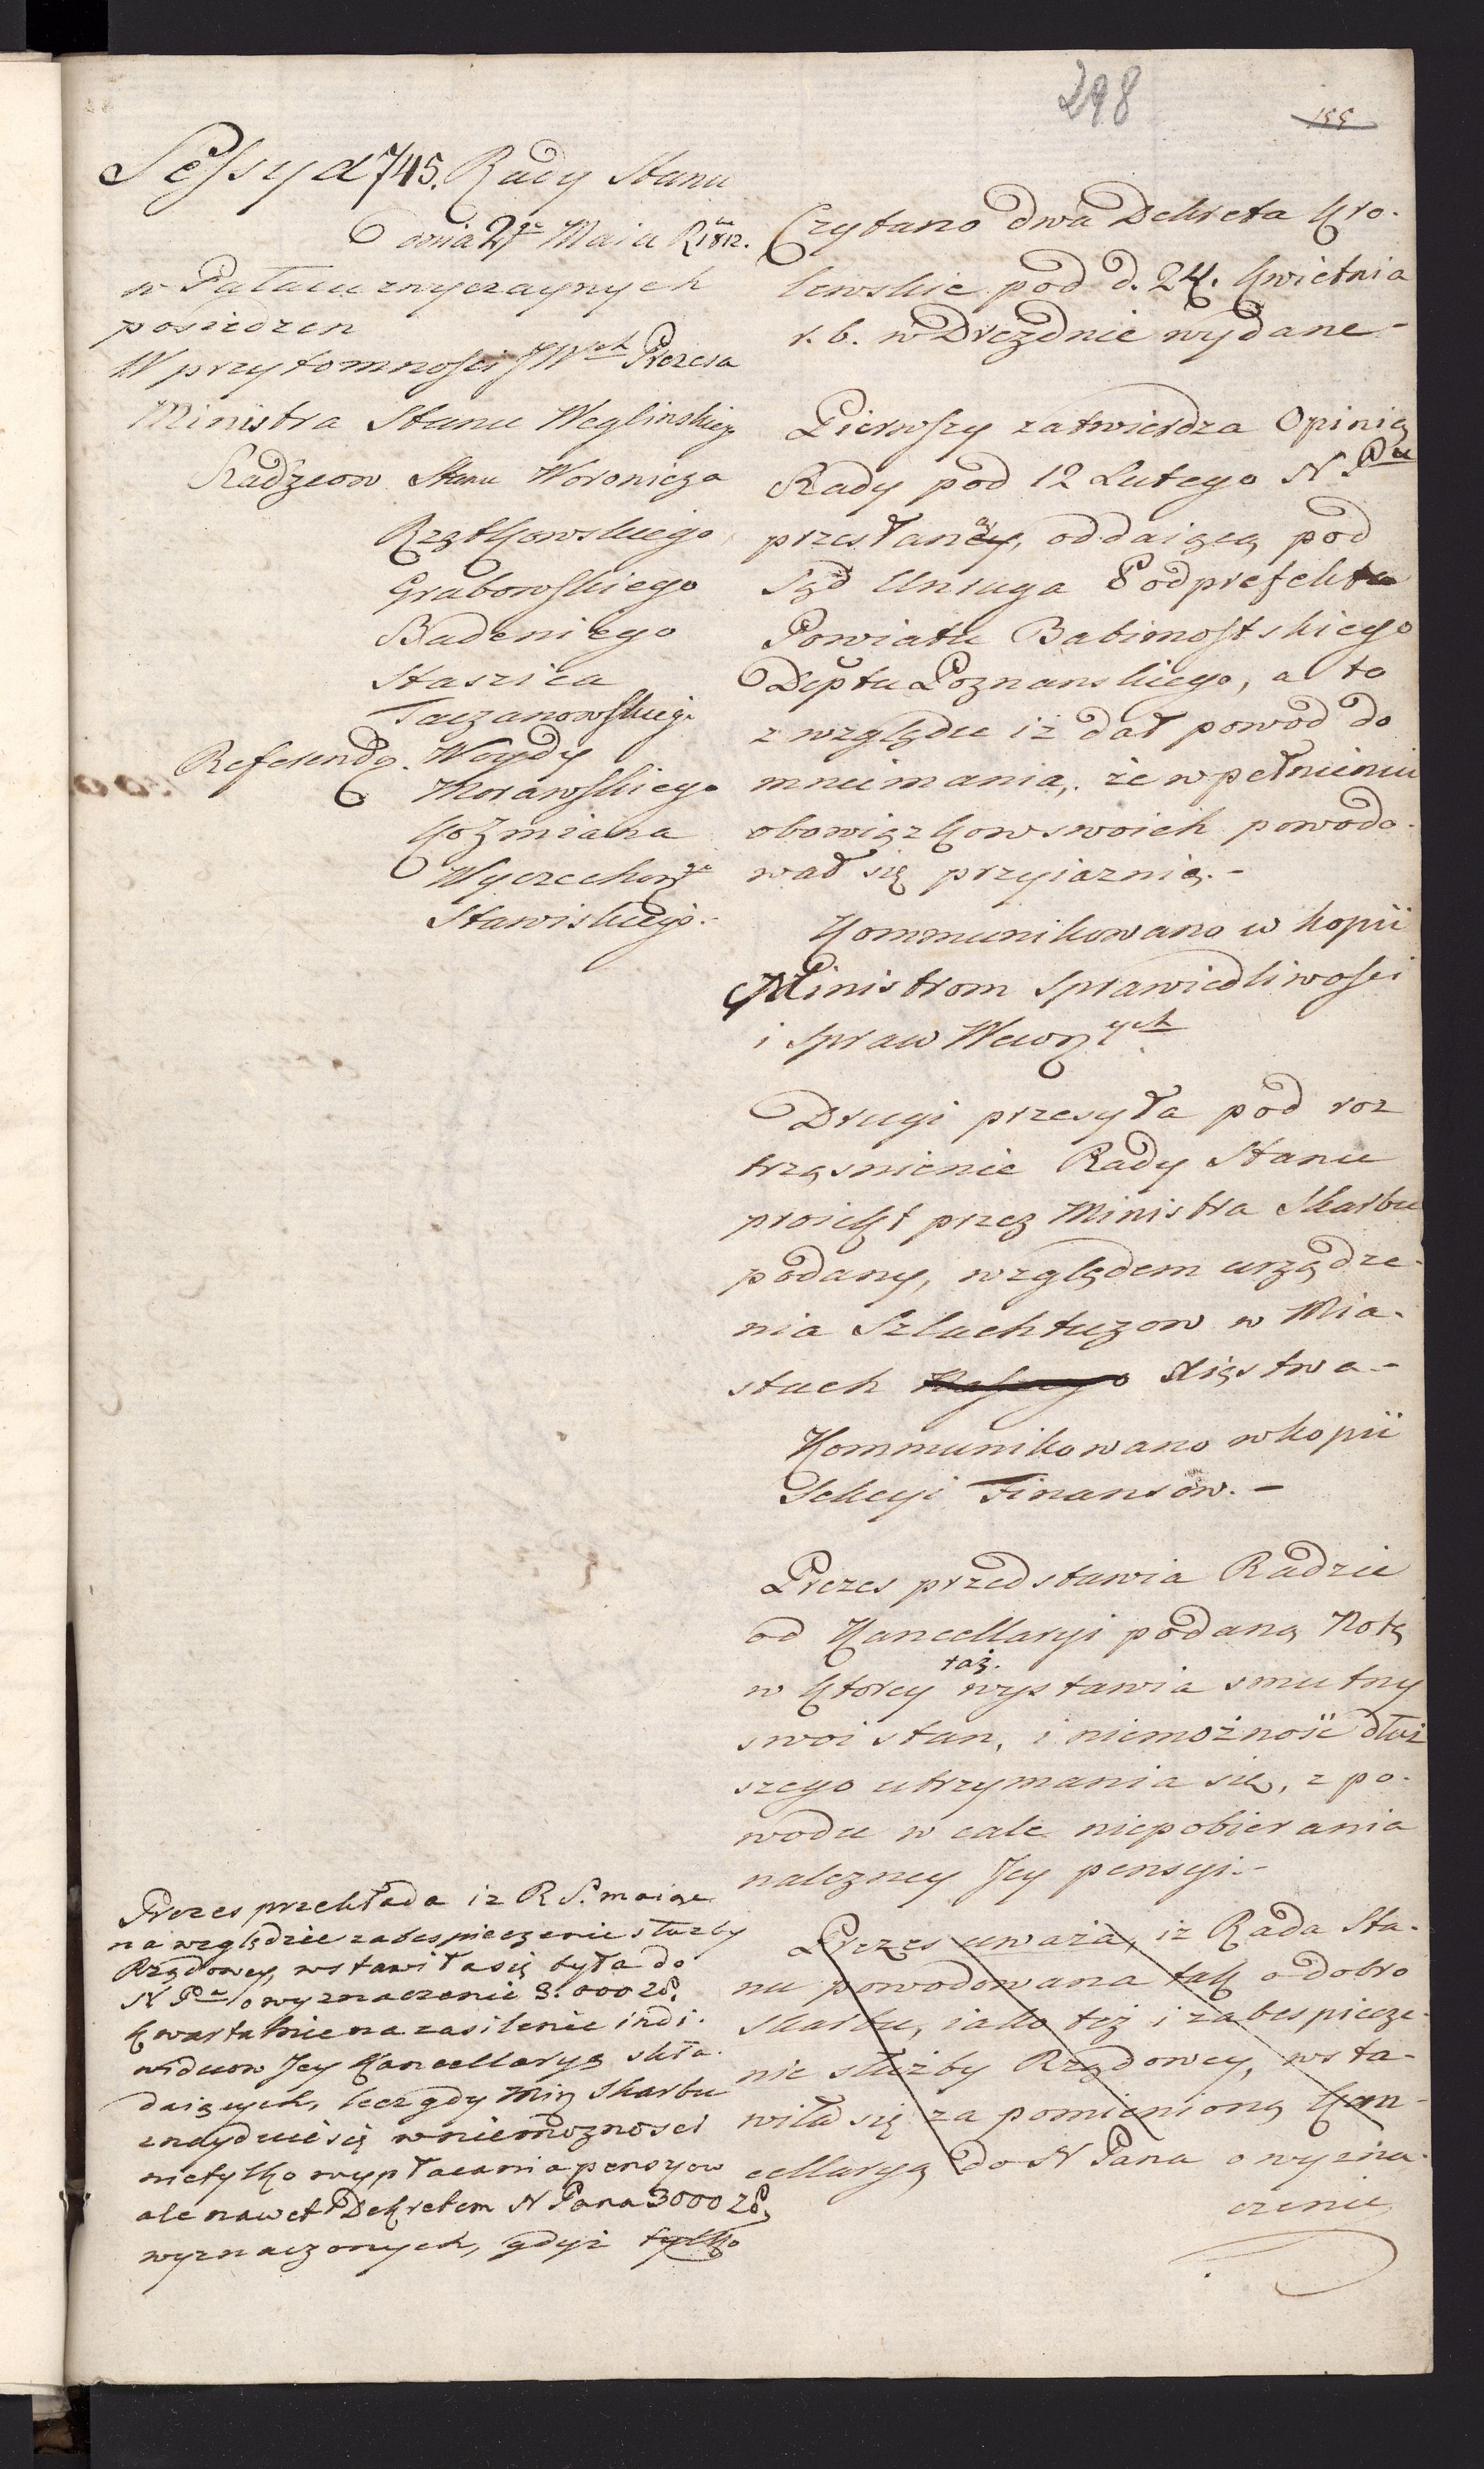 298
155
Sessya 745. Rady Stanu
dnia 2go Maia R 1812.
w Pałacu zwyczaynych
posiedzen
W przytomności JWch Prezesa
Ministra Stanu Weglinskieg
Radzcow Stanu Woronicza
Rzątkowskiego
Grabowskiego
Badeniego
Staszica
Taczanowskieg
Referend. Woydy
Morawskiego
Kozmiana
Wyczechow
Stawiskiego.-
Czytano dwa Dekreta Kro-
lewskie pod d. 24. Kwietnia
r. b. w Dreznie wydane-
Pierwszy zatwierdza Opinią
Rady pod 12 Lutego N. Pu
przesłaną, oddaiącą pod
Sąd Unruga Podprefekta
Powiatu Babimostskiego
Deptu Poznanskiego, a to
z względu iż dał powod do
mniemania, że w pełnieniu
obowiązkow swoich powodo-
wał się przyiaznią.-
Kommunikowano w kopii
Ministrom Sprawiedliwości
i Spraw Wewn ych
Drugi przesyła pod roz
trząsnienie Rady Stanu
proiekt przez Ministra Skarbu
podany, względem urządze-
nia Szlachtuzow w Mia-
stach Xięstwa.-
Kommunikowano w kopii
Sekcyi Finansow.-
Prezes przedstawia Radzie
od Kancellaryi podaną Notę
w ktorey taż wystawia smutny
swoi stan, i niemożność dłuż
szego utrzymania się, z po-
wodu w cale niepobierania
należney Jey pensyi.-
Prezes uważa, iż Rada Sta-
nu powodowana tak o dobro
Skarbu, iako też i zabespiecze-
nie służby Rządowey, wsta-
wiła się za pomienioną Kan-
cellaryą do N Pana o wyzna-
czenie
Prezes przekłada iż R S. maiąc
na względzie zabespieczenie służby
Rządowey, wstawiła się była do
N Pa o wyznaczenie 3.000 zł.
kwartalnie na zasilenie indi-
widuow Jey Kancellaryą skła-
daiących, lecz gdy Min Skarbu
znayduie się w niemożności
nietylko wypłacania pensyow
ale nawet Dekretem N Pana 3000 zł
wyznaczonych, gdyż tylko